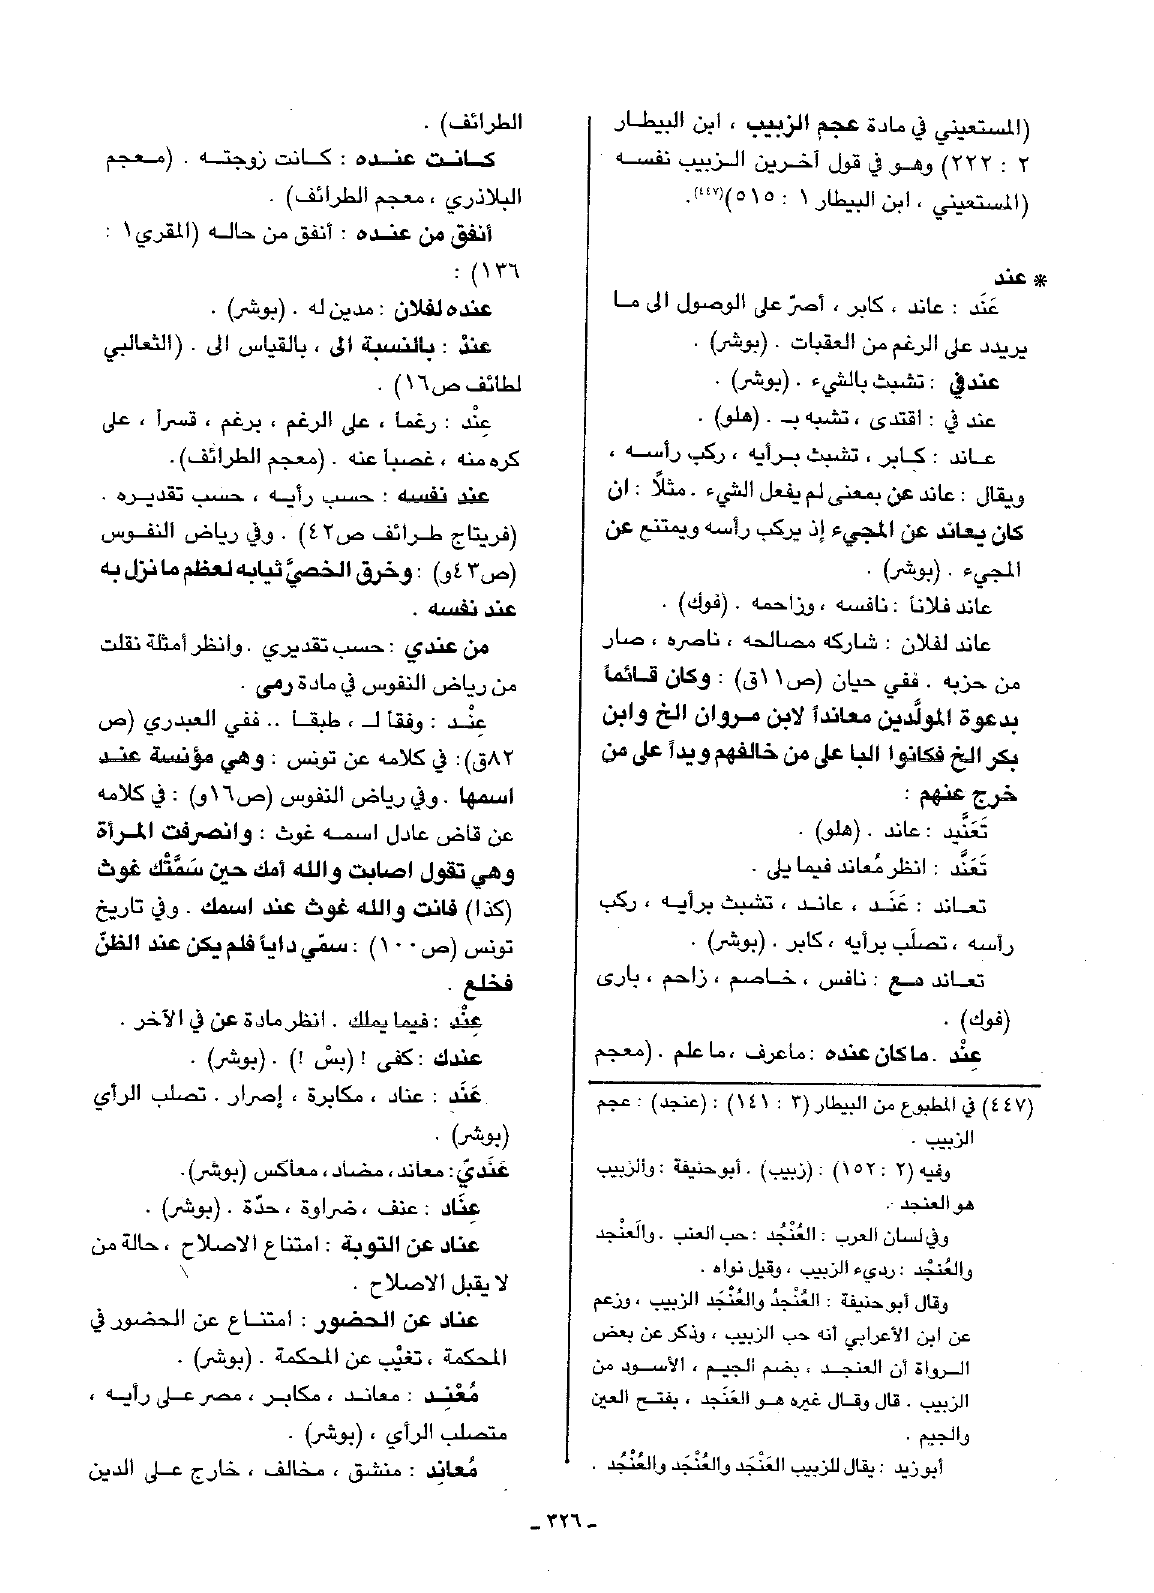 (المستعيني في مادة عجم الزبيب ، ابن البيطار
٢ : ٢٢٢) وهو في قول آخرين الزبيب نفسه
(المستعيني ، ابن البيطار ١ : ٥١٥)(٤٤٧).
* عند
عَنَد : عاند ، كابر ، أصرّ على الوصول الى ما
يريدد على الرغم من العقبات . (بوشر) .
عندفي : تشبث بالشيء . (بوشر) .
عند في : أقتدى ، تشبه بـ . (هلو) .
عـاند : كـابر ، تشبث بـرأيه ، ركب رأسـه ،
ويقال : عاند عن بمعنى لم يفعل الشيء . مثلاً : ان
كان يعاند عن المجيء إذ يركب رأسه ويمتنع عن
المجيء . (بوشر) .
عاند فلانا : نافسه ، وزاحمه . (فوك) .
عاند لفلان : شاركه مصالحه ، ناصره ، صار
من حزبه . ففي حيان (ص١١ق) : وكان قـائما
بدعوة المولَّدين معانداً لابن مروان الخ وابن
بكر الخ فكانوا البا على من خالفهم ويداً على من
خرج عنهم :
تَعَنَّيد : عاند . (هلو) .
تَعَنَّد : انظر مُعاند فيما يلي .
تعـاند : عَنَـد ، عانـد ، تشبث برأيـه ، ركب
رأسه ، تصلَّب برأيه ، كابر . (بوشر) .
تعـاند مـع : نافس ، خـاصم ، زاحم ، بارى
(فوك) .
عِنْد . ما كان عنده : ماعرف ، ما علم . (معجم
الطرائف) .
كـانـت عنـده : كـانت زوجتـه . (معـجم
البلاذري ، معجم الطرائف) .
أنفق من عنـده : أنفق من حالـه (المقري ١ :
١٣٦) :
عنده لفلان : مدين له . (بوشر) .
عندْ : بالنسبة الى ، بالقياس الى . (الثعالبي
لطائف ص١٦) .
عِنْد : رغما ، على الرغم ، برغم ، قسراً ، على
كره منه ، غصبا عنه . (معجم الطرائف).
عند نفسه : حسب رأيـه ، حسب تقديـره .
(فريتاج طـرائف ص٤٢) . وفي رياض النفـوس
(ص٤٣و) : وخرق الخصيُّ ثيابه لعظم ما نزل به
عند نفسه .
من عندي : حسب تقديري . وانظر أمثلة نقلت
من رياض النفوس في مادة رمى .
عِنْـد : وفقاً لـ ، طبقـا .. ففي العبدري (ص
٨٢ق): في كلامه عن تونس : وهي مؤنسة عنـد
اسمها . وفي رياض النفوس (ص١٦و) : في كلامه
عن قاض عادل اسمـه غوث : وانصرفت المـرأة
وهي تقول اصابت والله أمك حين سَمَّتْك غوث
(كذا) فانت والله غوث عند اسمك . وفي تاريخ
تونس (ص١٠٠) : سمّي داياً فلم يكن عند الظنّ
فخلع .
عِنْد : فيما يملك . انظر مادة عن في الآخر .
عندك : كفى ! (بسْ !) . (بوشر) .
عَنَد : عناد ، مكابرة ، إصرار . تصلب الرأي
(بوشر) .
عَنَديّ: معاند، مضاد، معاكس (بوشر).
عِنَاد : عنف ، ضراوة ، حدّة . (بوشر) .
عناد عن التوبة : امتناع الاصلاح ، حالة من
لا يقبل الاصلاح .
عناد عن الحضور : امتنـاع عن الحضور في
المحكمة ، تغيّب عن المحكمة . (بوشر) .
مُعْنِـد : معانـد ، مكابـر ، مصر عـلى رأيـه ،
متصلب الرأي ، (بوشر) .
مُعانِد : منشق ، مخالف ، خارج عـلى الدين
(٤٤٧) في المطبوع من البيطار (٣ : ١٤١) : (عنجد) : عجم
الزبيب .
وفيه (٢ : ١٥٢) : (زبيب) . أبو حنيفة : والزبيب
هو العنجد .
وفي لسان العرب : العُنْجُد : حب العنب . والعَنْجد
والعُنْجْد : رديء الزبيب ، وقيل نواه .
وقال أبو حنيفة : العُنْجُدُ والعُنْجَد الزبيب ، وزعم
عن ابن الأعرابي أنه حب الزبيب ، وذكر عن بعض
الـرواة أن العنجـد ، بضم الجيم ، الأسـود من
الزبيب . قال وقـال غيره هـو العَنْجَد ، بفتـح العين
والجيم .
أبو زيد : يقال للزبيب العَنْجَد والعُنْجَد والعُنْجُد .
ـ ٣٢٦ ـ